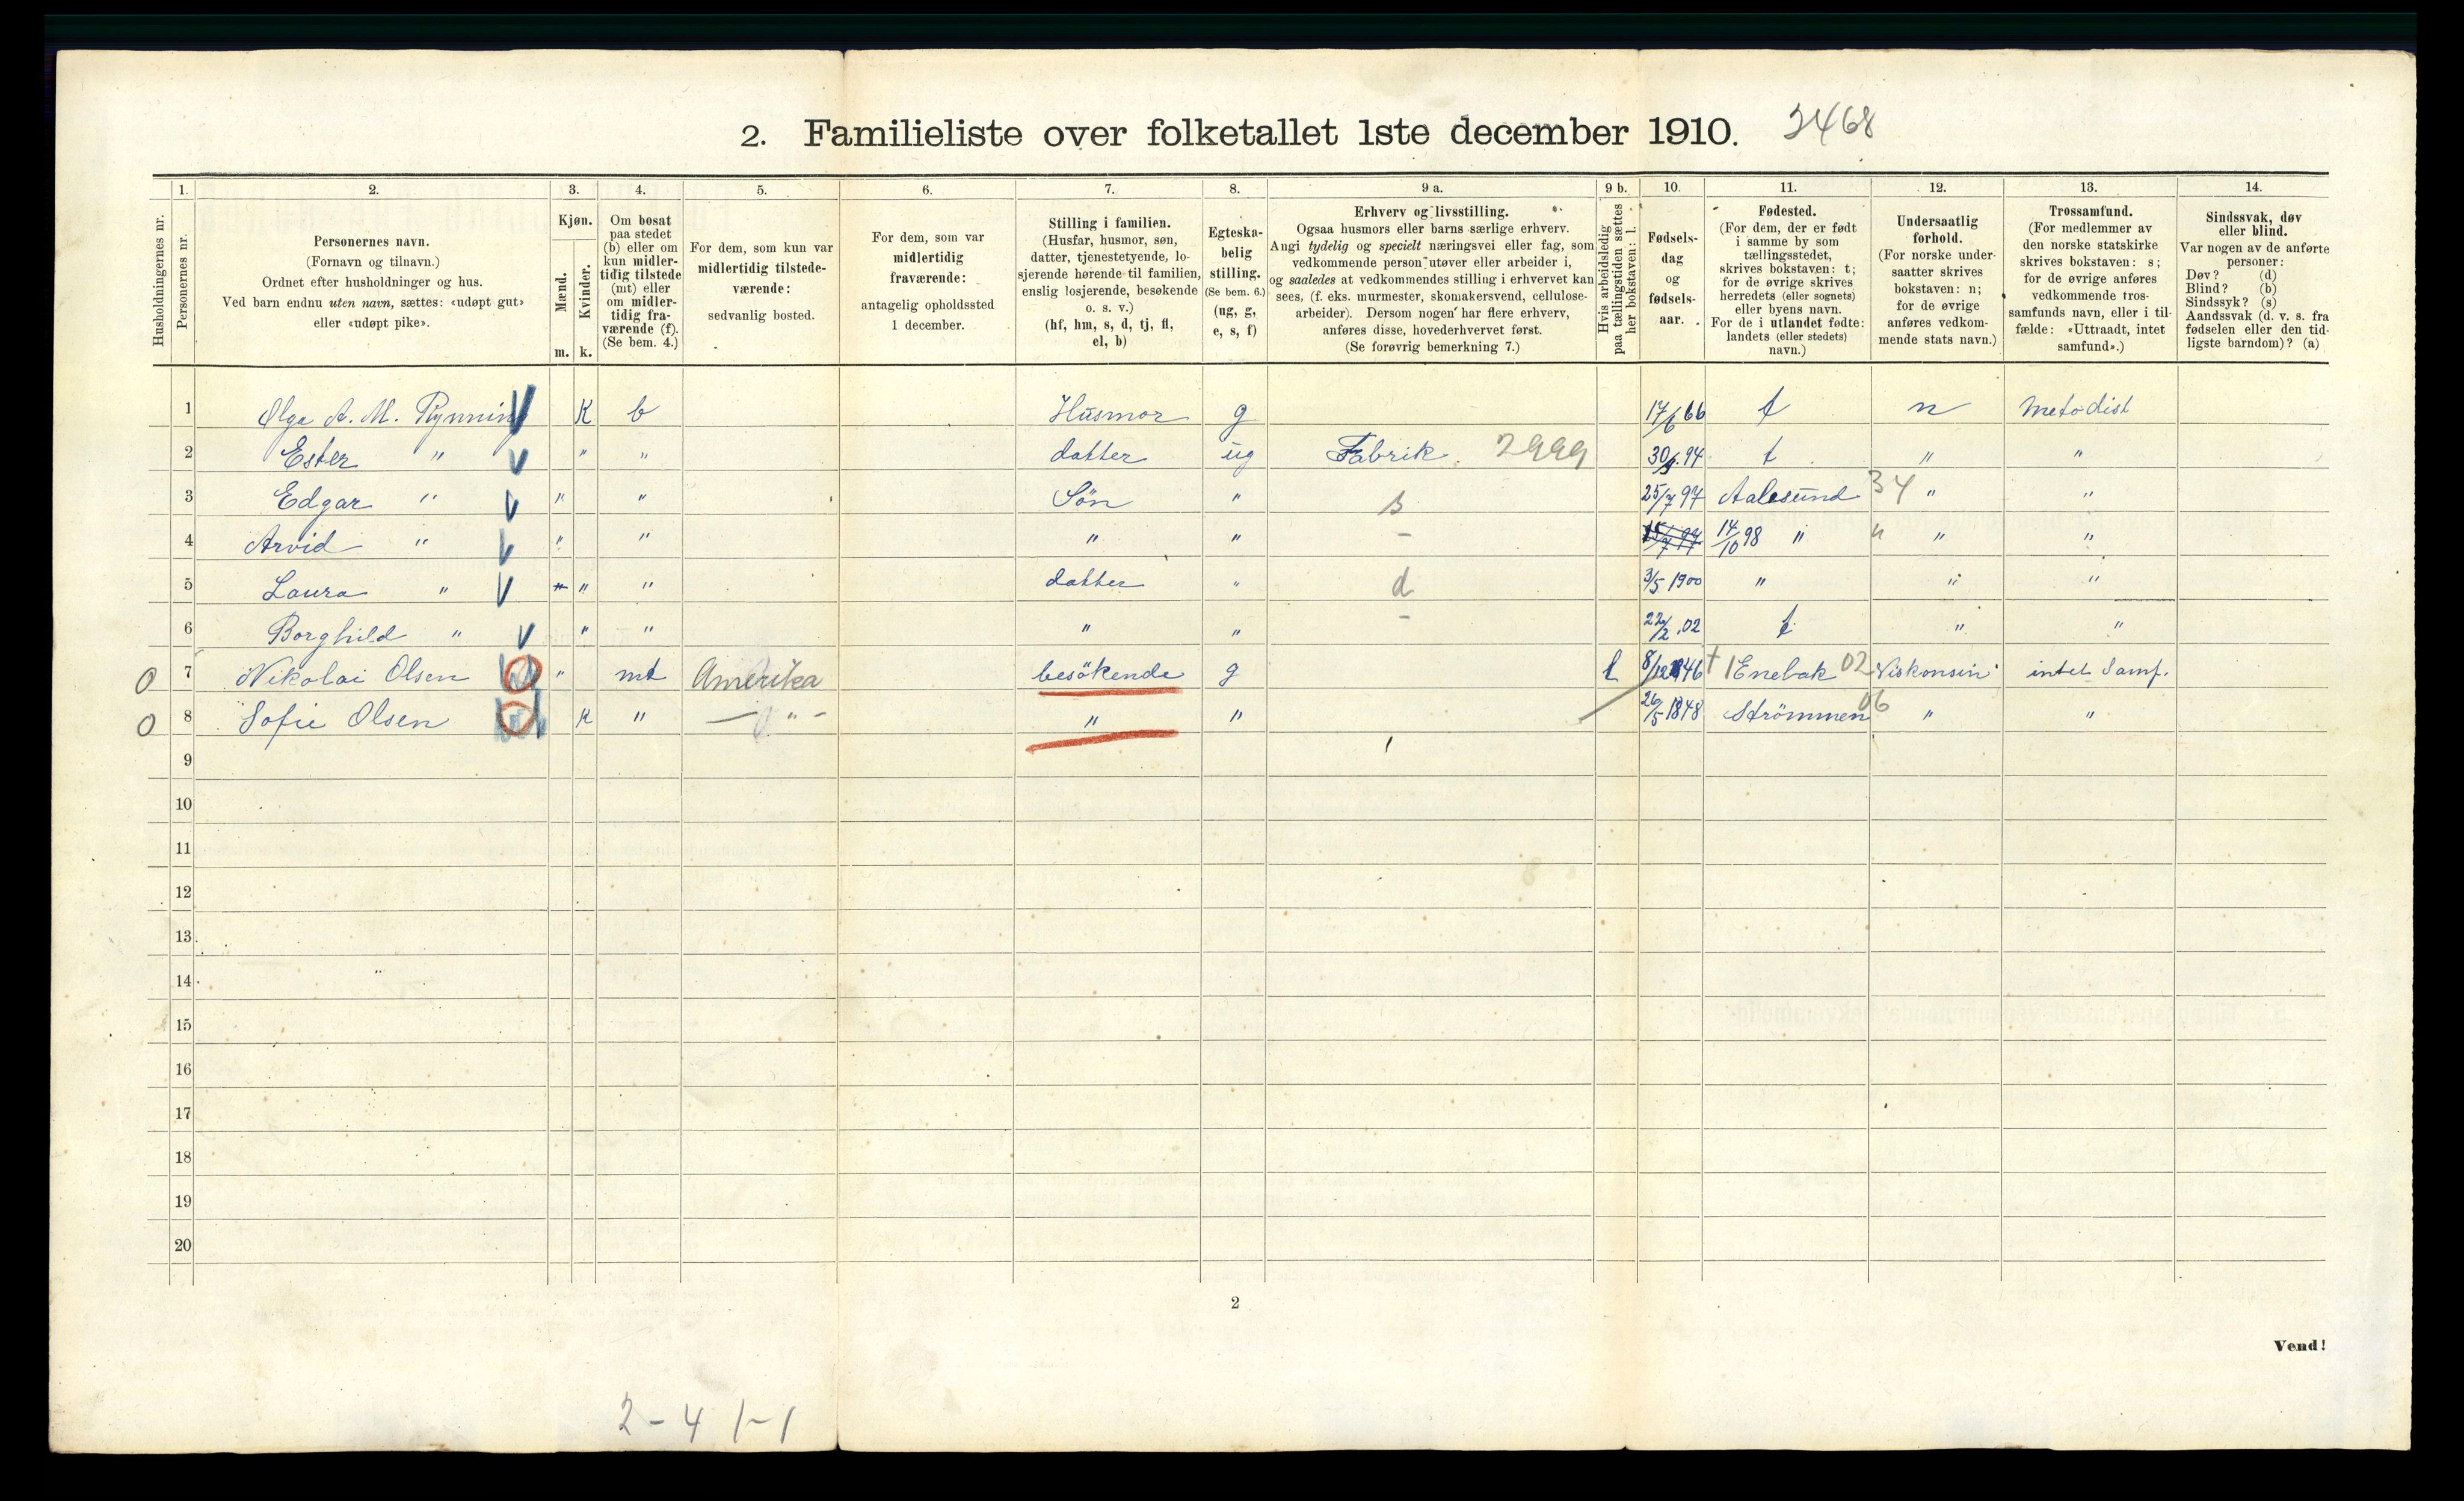 2. Familieliste over folketallet 1ste december 1910. 3468
Husholdningernes nr.
1.
Personernes nr.
2.
Personernes navn.
(Fornavn og tilnavn.)
Ordnet efter husholdninger og hus.
Ved barn endnu uten navn, sættes: «udøpt gut»
eller «udøpt pike».
3.
Kjøn.
Mænd.
Kvinder.
m. k.
4.
Om bosat
paa stedet
(b) eller om
kun midler-
tidig tilstede
(mt) eller
om midler-
tidig fra-
værende (f).
(Se bem. 4.)
5.
For dem, som kun var
midlertidig tilstede-
værende:
sedvanlig bosted.
6.
For dem, som var
midlertidig
fraværende:
antagelig opholdssted
1 december.
7.
Stilling i familien.
(Husfar, husmor, søn,
datter, tjenestetyende, lo-
sjerende hørende til familien,
enslig losjerende, besøkende
o. s. v.)
(hf, hm, s, d, tj, fl,
el, b)
8.
Egteska-
belig
stilling.
(Se bem. 6.)
(ug, g,
e, s, f)
9 a.
Erhverv og livsstilling.
Ogsaa husmors eller barns særlige erhverv.
Angi tydelig og specielt næringsvei eller fag, som
vedkommende person utøver eller arbeider i,
og saaledes at vedkommendes stilling i erhvervet kan
sees, (f. eks. murmester, skomakersvend, cellulose-
arbeider). Dersom nogen har flere erhverv,
anføres disse, hovederhvervet først.
(Se forøvrig bemerkning 7.)
9 b.
Hvis arbeidsledig
paa tællingstiden sættes
her bokstaven: l.
10.
Fødsels-
dag
og
fødsels-
aar.
11.
Fødested.
(For dem, der er født
i samme by som
tællingsstedet,
skrives bokstaven: t;
for de øvrige skrives
herredets (eller sognets)
eller byens navn.
For de i utlandet fødte:
landets (eller stedets)
navn.)
12.
Undersaatlig
forhold.
(For norske under-
saatter skrives
bokstaven: n;
for de øvrige
anføres vedkom-
mende stats navn.)
13.
Trossamfund.
(For medlemmer av
den norske statskirke
skrives bokstaven: s;
for de øvrige anføres
vedkommende tros-
samfunds navn, eller i til-
fælde: «Uttraadt, intet
samfund».)
14.
Sindssvak, døv
eller blind.
Var nogen av de anførte
personer:
Døv? (d)
Blind? (b)
Sindssyk? (s)
Aandssvak (d. v. s. fra
fødselen eller den tid-
ligste barndom)? (a)
1 Olga A. M. Rynning K b Husmor g 17/6 66 t n Metodist
2 Ester " " " datter ug Fabrik. 2999 30/9.94 t " "
3 Edgar " " " Søn " s 25/7 97 Aalesund 34 " "
4 Arvid " " " " " - 14/10 98 " " " "
5 Laura " " " datter " d 3/5 1900 " " "
6 Borghild " " " " " - 22/2 .02 t " "
0 7 Nikolai Olsen " mt Amerika besökende g l 8/12 1846 Enebak 02 Viskonsin intet Samf.
0 8 Sofie Olsen K " — " - " " 26/5 1848 Strömmen 06 " "
9
10
11
12
13
14
15
16
17
18
19
20
2
Vend!
2 - 4 1 - 1